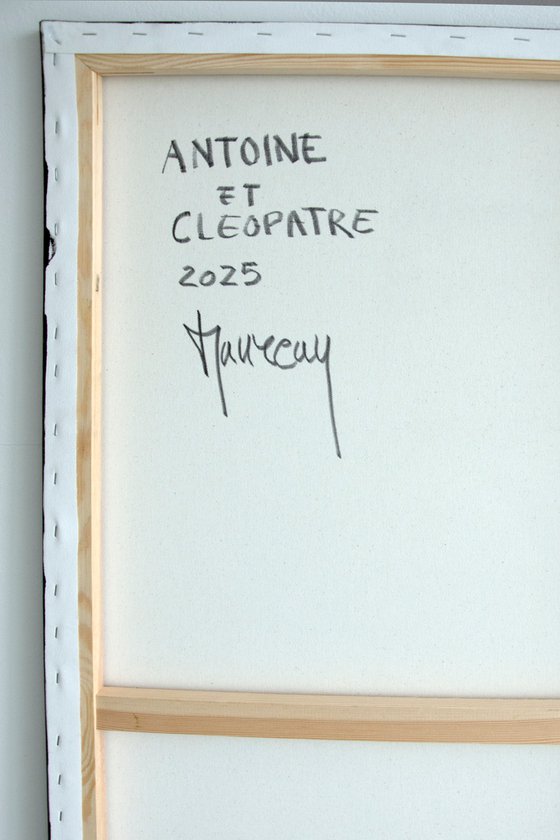 ANTOINE
ET
CLEOPATRE
2025